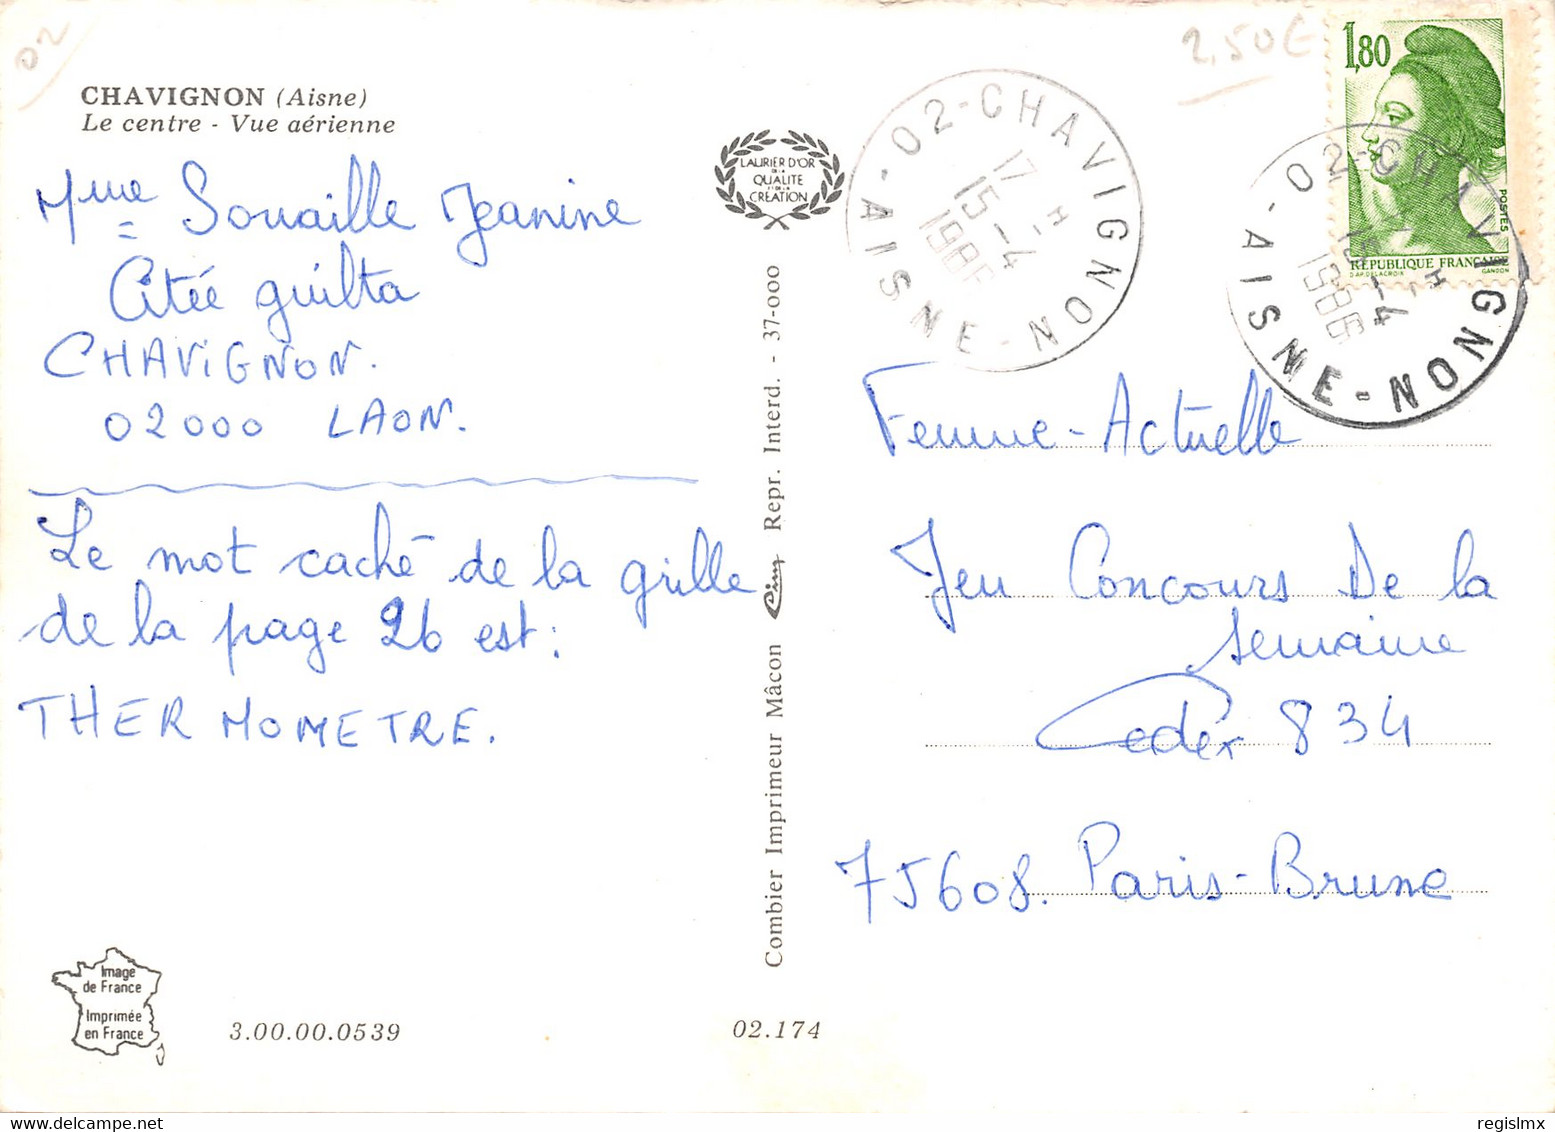 02
CHAVIGNON (Aisne)
Le centre - Vue aérienne
Mme Souaille Jeanine
Citée guilta
CHAVIGNON.
02000 LAON.
Le mot caché de la grille
de la page 26 est :
THERMOMETRE.
Image
de France
Imprimée
en France
3.00.00.0539
02.174
LAURIER D'OR
DE LA
QUALITE
ET DE LA
CRÉATION
Combier Imprimeur Mâcon Cim Repr. Interd. - 37-000
02-CHAVIGNON
-AISNE-
17 H
15 -4
1986
2,50€
1,80
POSTES
RÉPUBLIQUE FRANÇAISE
D'AP. DELACROIX GANDON
02-CHAVIGNON
-AISNE-
H
15-4
1986
Femme-Actuelle
Jeu Concours De la
semaine
Cedex 834
75608. Paris-Brune
regislmx